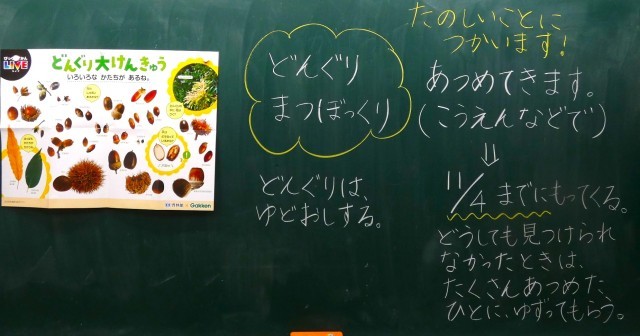 LIVE
どんぐり大けんきゅう
いろいろな かたちが あるね。
Gakken
どんぐり
まつぼっくり
どんぐりは、
ゆどおしする。
たのしいことに
つかいます!
あつめてきます。
(こうえんなどで)
⇓
11/4 までにもってくる。
どうしても見つけられ
なかったときは、
たくさんあつめた
ひとに、ゆずってもらう。